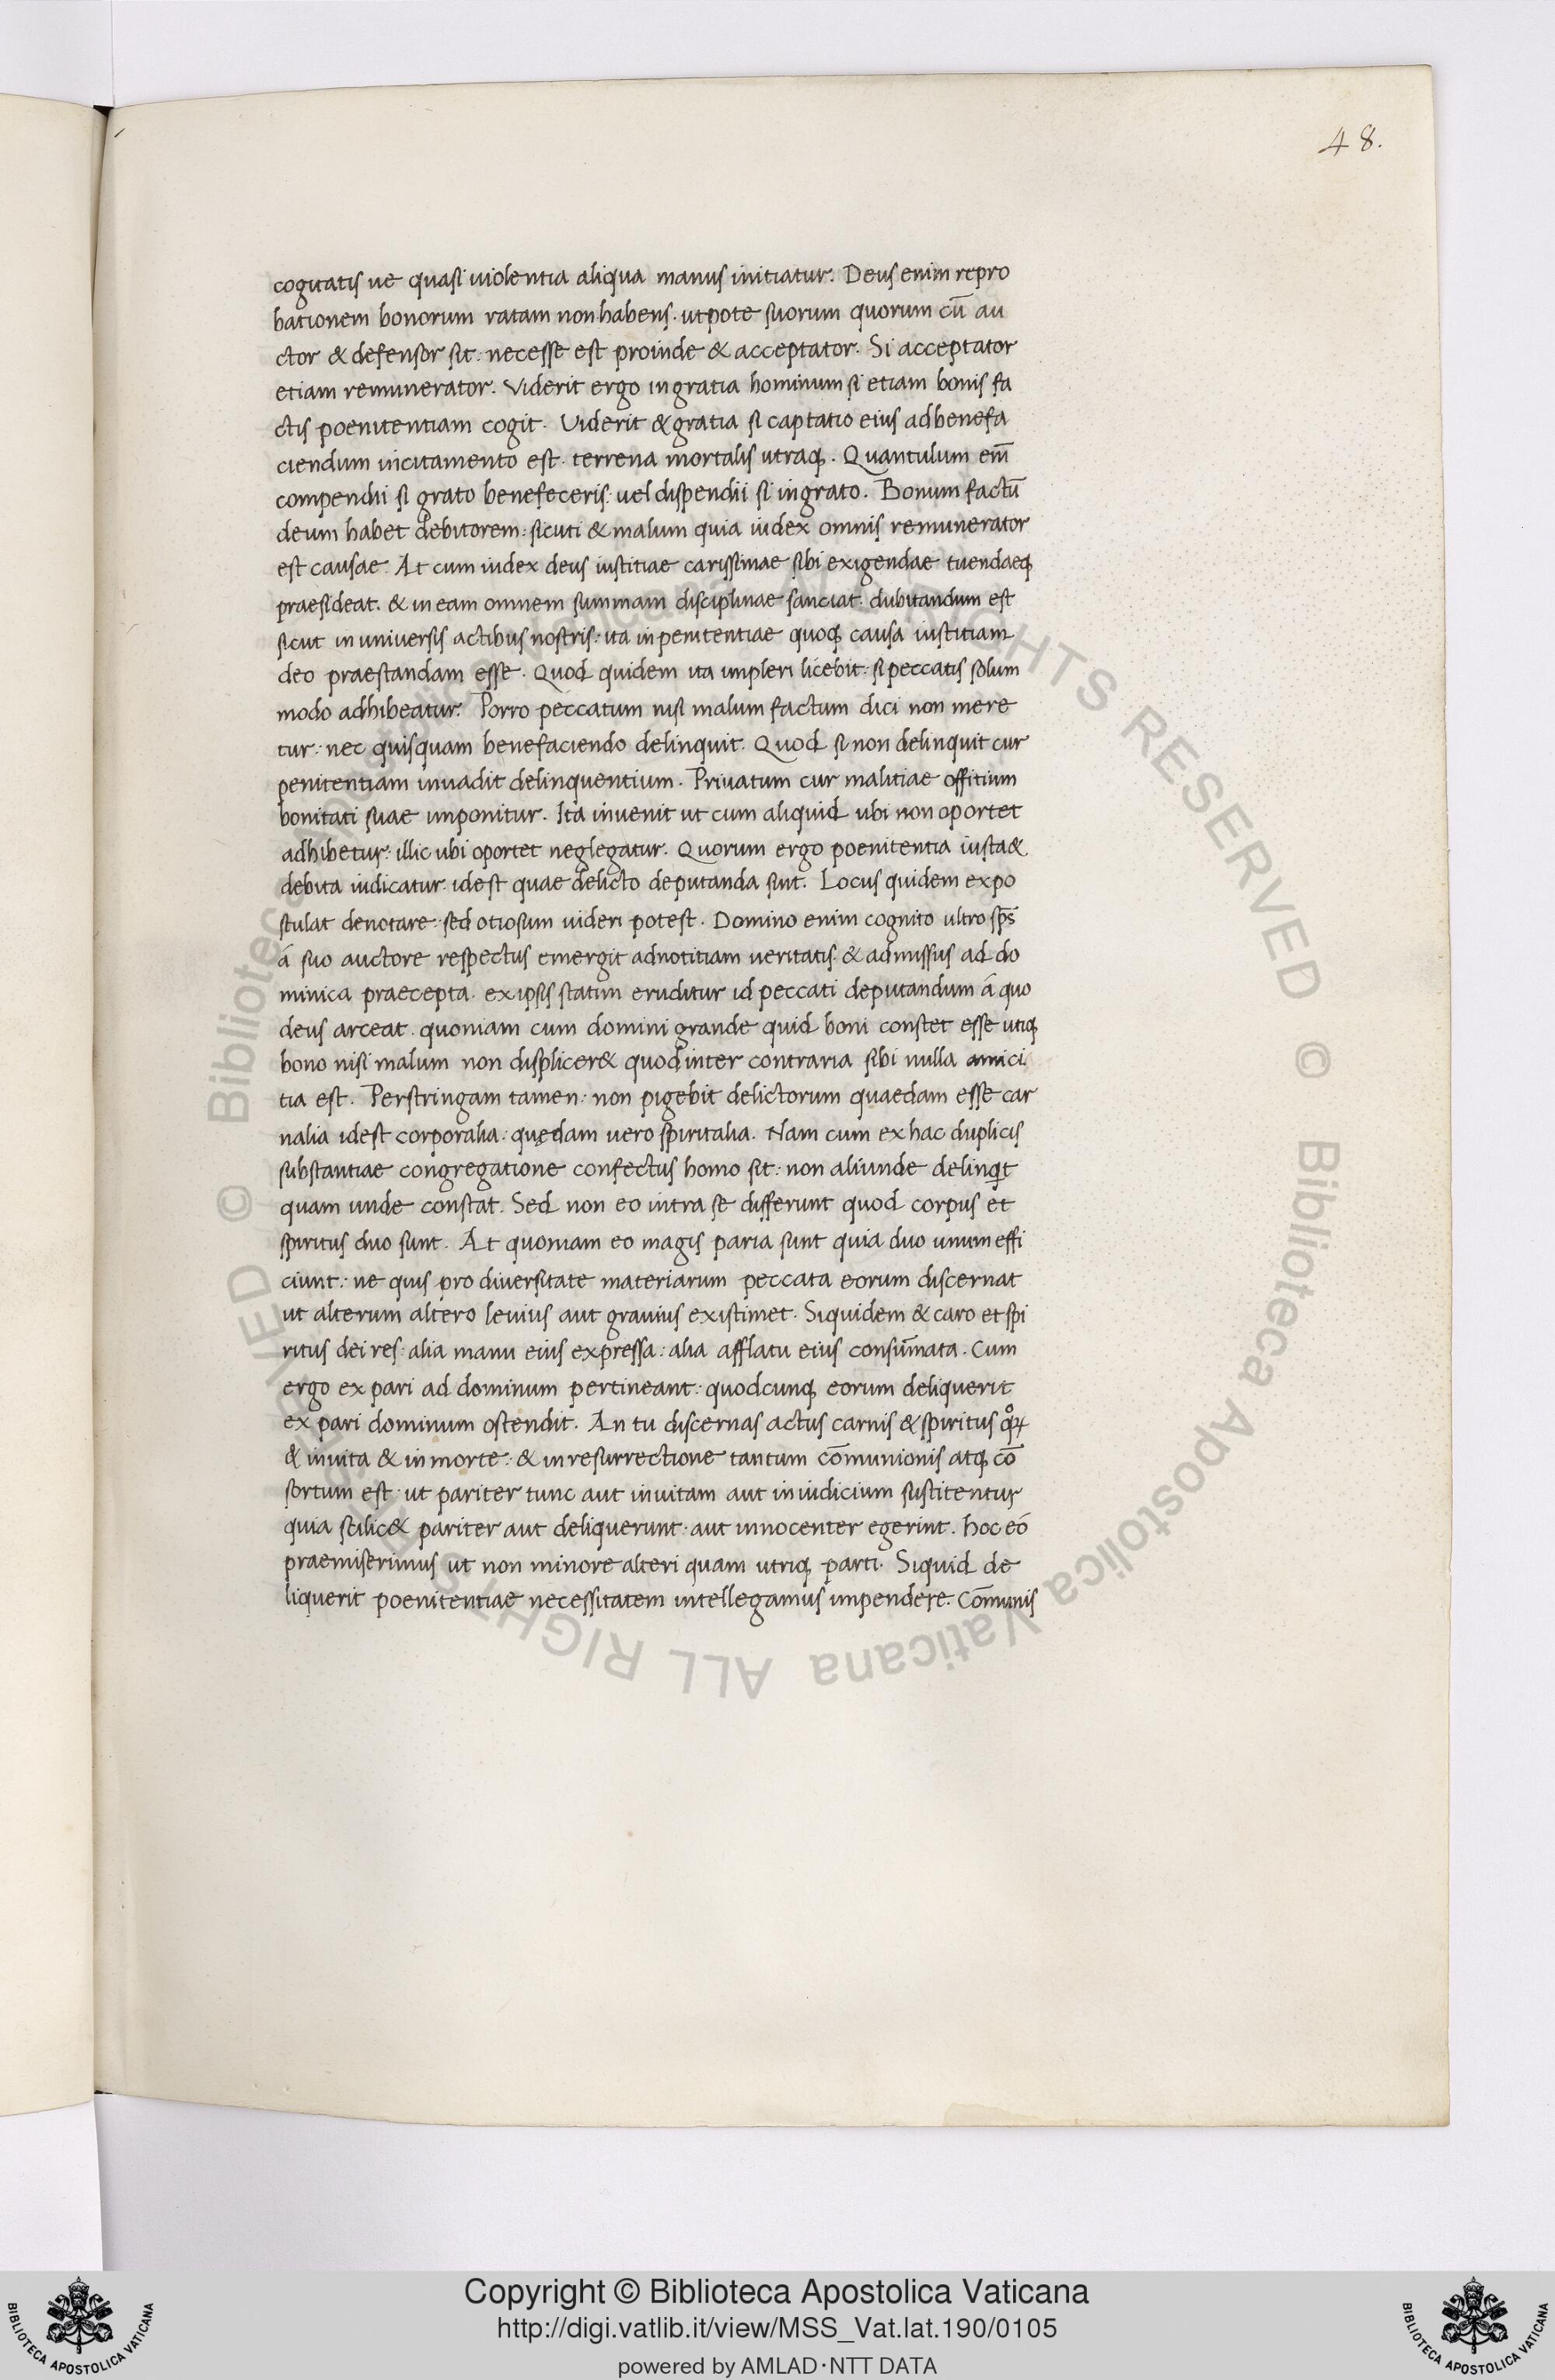 48.
cogitatis ue quasi uiolentia aliqua manus initiatur. Deus enim repro
bationem bonorum ratam non habens. utpote suorum quorum cū au
ctor & defensor sit: necesse est proinde & acceptator. Si acceptator
etiam remunerator. Viderit ergo ingratia hominum si etiam bonis fa
ctis poenitentiam cogit. Viderit & gratia si captatio eius ad benefa
ciendum incitamento est. terrena mortalis utraq;. Quantulum em̄
compendii si grato benefeceris: uel dispendii si ingrato. Bonum factū
deum habet debitorem: sicuti & malum quia iudex omnis remunerator
est causae. At cum iudex deus iustitiae carissimae sibi exigendae tuendaeq;
praesideat. & in eam omnem summam disciplinae sanciat. dubitandum est
sicut in universis actibus nostris: ita in penitentiae quoq; causa iustitiam
deo praestandam esse. Quod quidem ita impleri licebit: si peccatis solum
modo adhibeatur. Porro peccatum nisi malum factum dici non mere
tur: nec quisquam benefaciendo delinquit. Quod si non delinquit cur
penitentiam inuadit delinquentium. Priuatum cur malitiae offitium
bonitati suae imponitur. Ita invenit ut cum aliquid ubi non oportet
adhibetur: illic ubi oportet neglegatur. Quorum ergo poenitentia iusta &
debita iudicatur: idest quae delicto deputanda sint. Locus quidem expo
stulat denotare: sed otiosum uideri potest. Domino enim cognito ultro sp̄s
á suo auctore respectus emergit ad notitiam ueritatis. & admissus ad do
minica praecepta. ex ipsis statim eruditur id peccati deputandum á quo
deus arceat. quoniam cum domini grande quid boni constet esse utiq;
bono nisi malum non displicer& quod inter contraria sibi nulla amici
tia est. Perstringam tamen: non pigebit delictorum quaedam esse car
nalia idest corporalia: quędam uero spiritalia. Nam cum ex hac duplicis
substantiae congregatione confectus homo sit: non aliunde delinqt
quam unde constat. Sed non eo intra se differunt quod corpus et
spiritus duo sunt. At quoniam eo magis paria sunt quia duo unum effi
ciunt: ne quis pro diversitate materiarum peccata eorum discernat
ut alterum altero leuius aut grauius existimet. Siquidem & caro et spi
ritus dei res: alia manu eius expressa: alia afflatu eius consum̄ata. Cum
ergo ex pari ad dominum pertineant: quodcunq; eorum deliquerit
ex pari dominum ostendit. An tu discernas actus carnis & spiritus qͦꝝ
& in uita & in morte: & in resurrectione tantum com̄unionis atq; cō
sortum est: ut pariter tunc aut in uitam aut in iudicium suscitentur
quia scilic& pariter aut deliquerunt: aut innocenter egerint. hoc eó
praemiserimus ut non minore alteri quam utriq; parti. Siquid de
liquerit poenitentiae necessitatem intellegamus impendere. Com̄unis
© Biblioteca Apostolica Vaticana ALL RIGHTS RESERVED
Copyright © Biblioteca Apostolica Vaticana
http://digi.vatlib.it/view/MSS_Vat.lat.190/0105
powered by AMLAD·NTT DATA
BIBLIOTECA APOSTOLICA VATICANA
BIBLIOTECA APOSTOLICA VATICANA